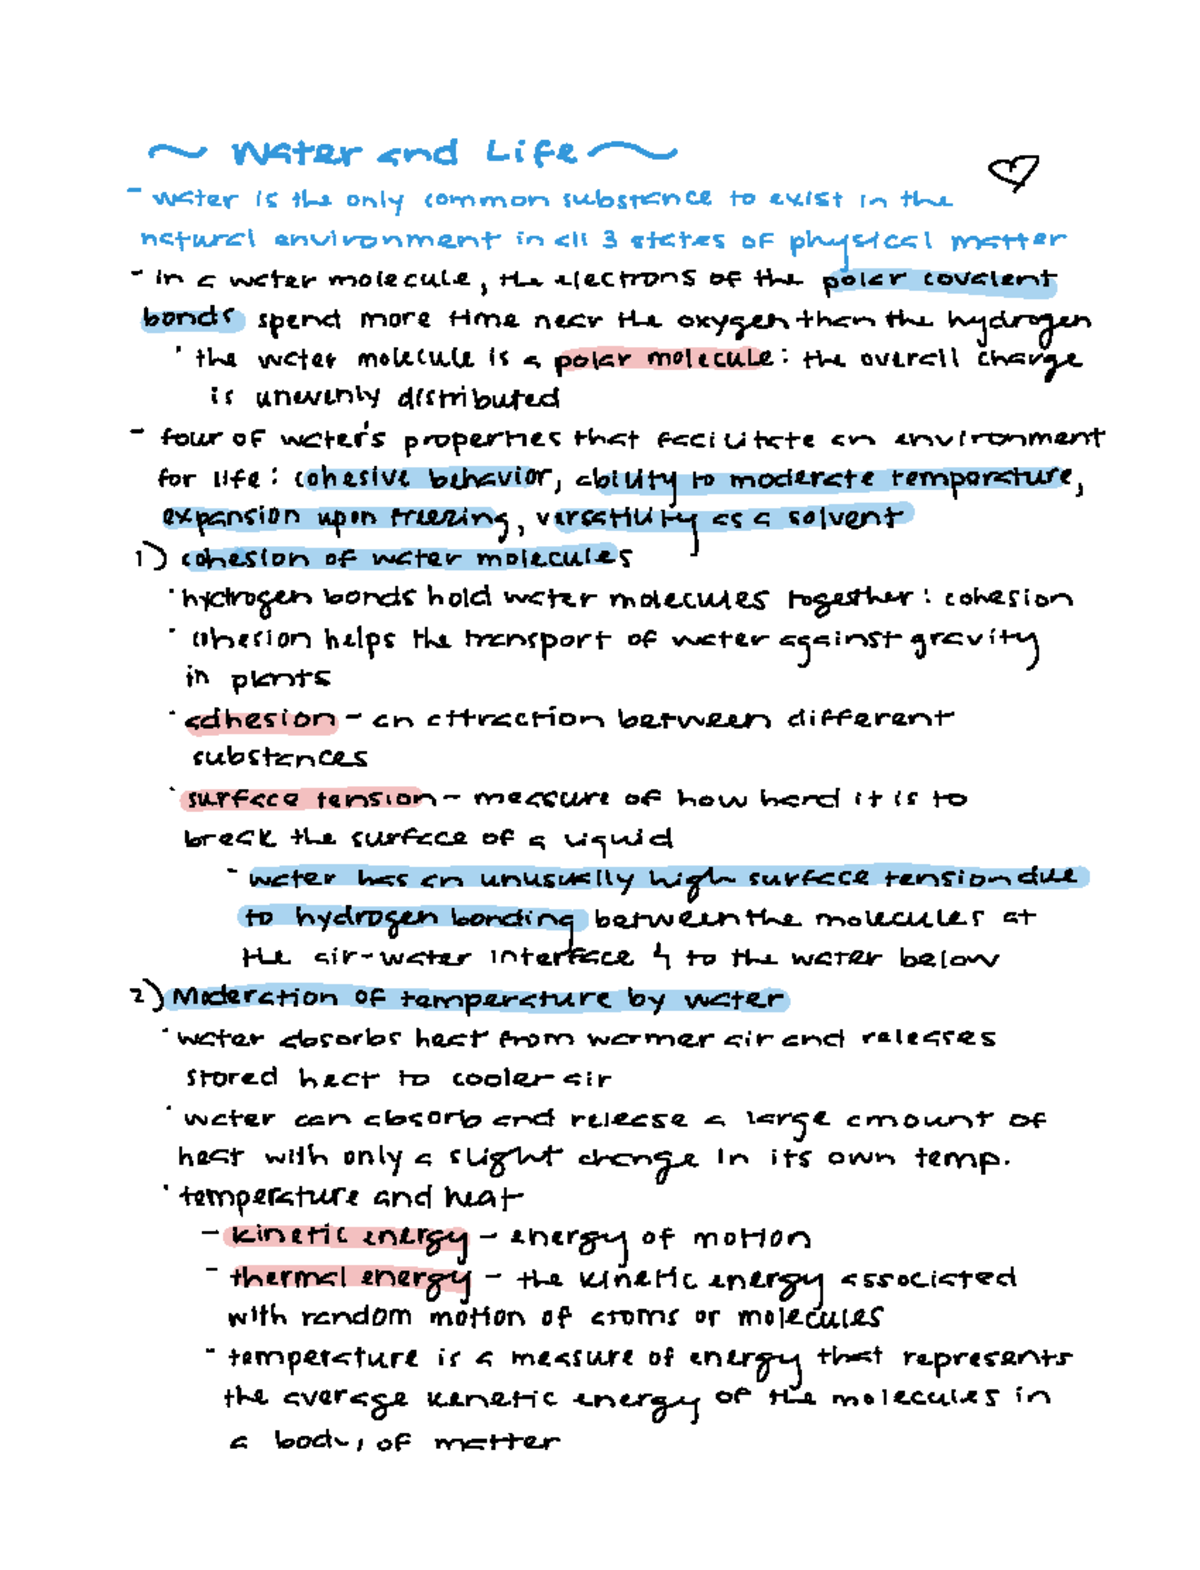 ~ Water and Life ~
- water is the only common substance to exist in the
natural environment in all 3 states of physical matter
- in a water molecule, the electrons of the polar covalent
bonds spend more time near the oxygen than the hydrogen
· the water molecule is a polar molecule: the overall charge
is unevenly distributed
- four of water's properties that facilitate an environment
for life: cohesive behavior, ability to moderate temperature,
expansion upon freezing, versatility as a solvent
1) cohesion of water molecules
· hydrogen bonds hold water molecules together: cohesion
· cohesion helps the transport of water against gravity
in plants
· adhesion - an attraction between different
substances
· surface tension - measure of how hard it is to
break the surface of a liquid
- water has an unusually high surface tension due
to hydrogen bonding between the molecules at
the air-water interface & to the water below
2) Moderation of temperature by water
· water absorbs heat from warmer air and releases
stored heat to cooler air
· water can absorb and release a large amount of
heat with only a slight change in its own temp.
· temperature and heat
- kinetic energy - energy of motion
- thermal energy - the kinetic energy associated
with random motion of atoms or molecules
- temperature is a measure of energy that represents
the average kenetic energy of the molecules in
a body of matter